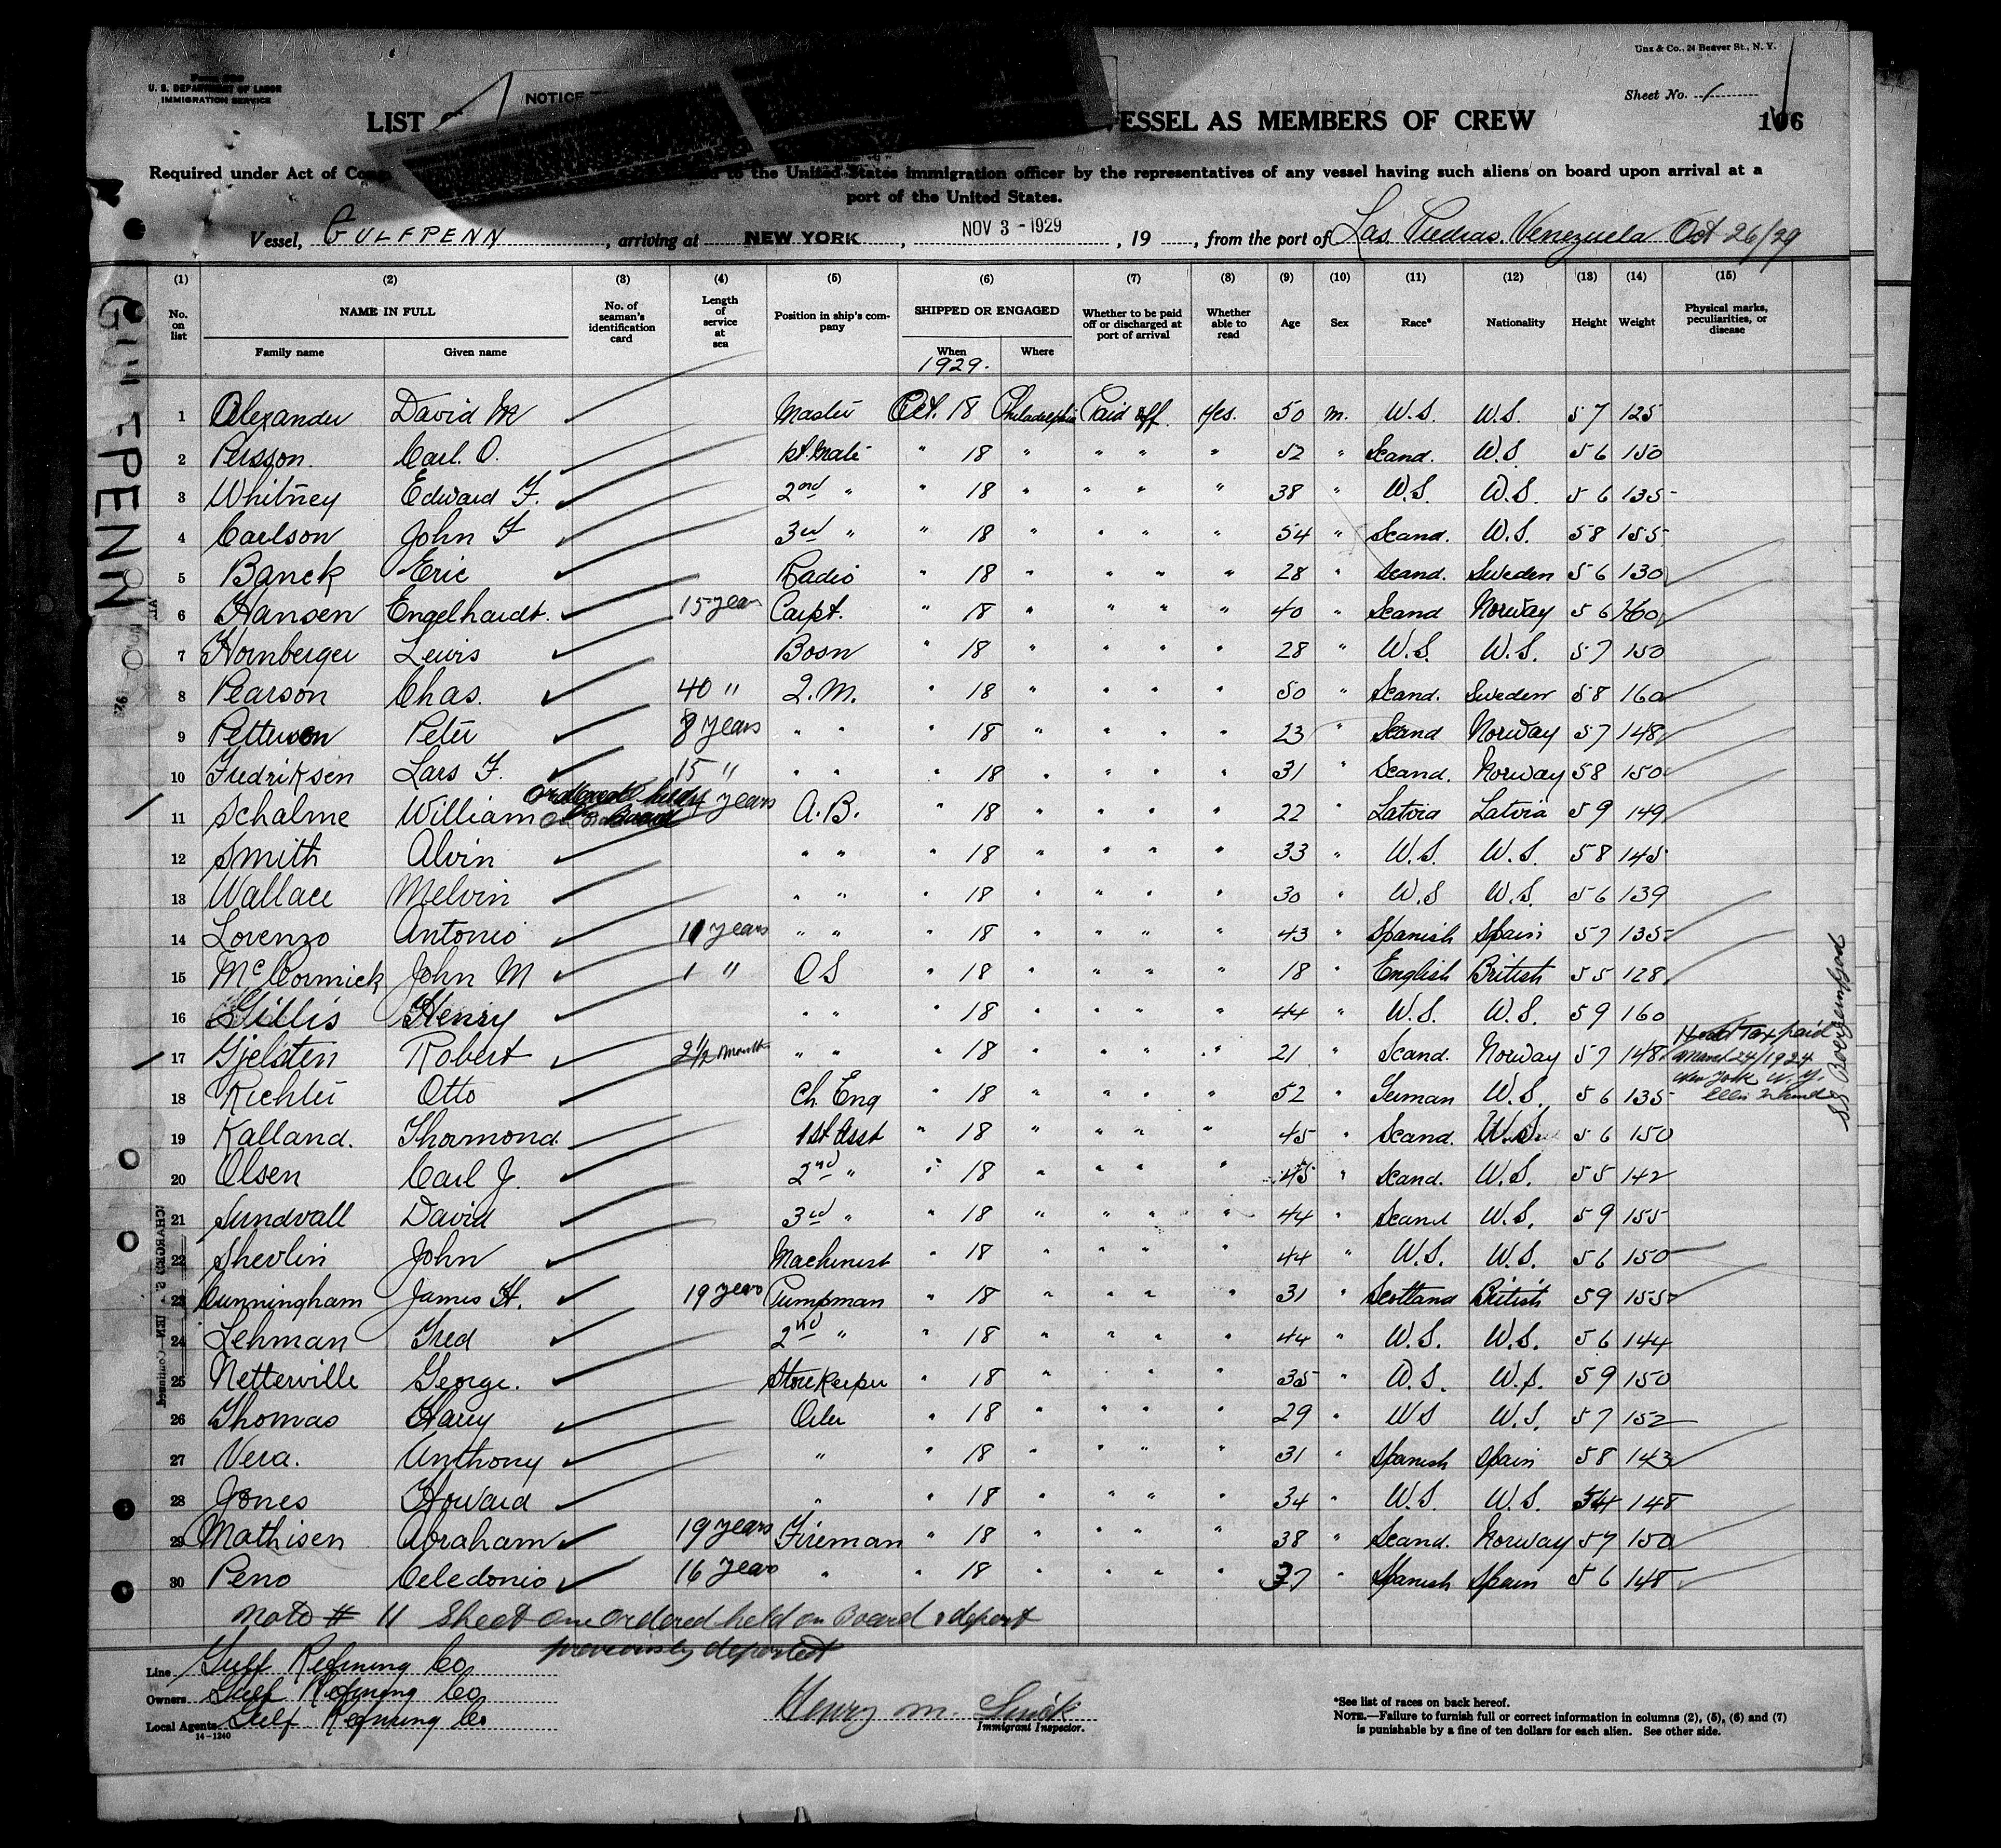 Unz & Co., 24 Beaver St., N. Y.
U. S. DEPARTMENT OF LABOR
IMMIGRATION SERVICE
NOTICE
Sheet No. 1
LIST VESSEL AS MEMBERS OF CREW 106
Required under Act of Cong to the United States immigration officer by the representatives of any vessel having such aliens on board upon arrival at a
port of the United States.
Vessel, GULFPENN, arriving at NEW YORK, NOV 3 - 1929, 19, from the port of Las Piedras, Venezuela Oct 26/29
(1) (2) (3) (4) (5) (6) (7) (8) (9) (10) (11) (12) (13) (14) (15)
No. on list NAME IN FULL Family name Given name No. of seaman's identification card Length of service at sea Position in ship's company SHIPPED OR ENGAGED When Where Whether to be paid off or discharged at port of arrival Whether able to read Age Sex Race* Nationality Height Weight Physical marks, peculiarities, or disease
1929.
1 Alexander David M Master Oct. 18 Philadelphia Paid off. Yes. 50 m. U.S. U.S. 5 7 125
2 Persson. Carl. O. 1st. Mate " 18 " " " " 52 " Scand. U.S 5 6 150
3 Whitney Edward F. 2nd " " 18 " " " " 38 " U.S. U.S. 5 6 135
4 Carlson John F 3rd " " 18 " " " " 54 " Scand. U.S. 5 8 155
5 Banck Eric Radio " 18 " " " " 28 " Scand. Sweden 5 6 130
6 Hansen Engelhardt. 15 years Carpt. " 18 " " " " 40 " Scand Norway 5 6 160
7 Hornberger Lewis Bosn " 18 " " " " 28 " U.S. U.S. 5 7 150
8 Pearson Chas. 40 " Q.M. " 18 " " " " 50 " Scand. Sweden 5 8 160
9 Petterson Peter 8 years " " " 18 " " " " 23 " Scand Norway 5 7 148
10 Fredriksen Lars F. 15 " " " " 18 " " " " 31 " Scand. Norway 5 8 150
11 Schalme William years A.B. " 18 " " " " 22 " Latvia Latvia 5 9 149
12 Smith Alvin " " " 18 " " " " 33 " U.S. U.S. 5 8 145
13 Wallace Melvin " " " 18 " " " " 30 " U.S U.S. 5 6 139
14 Lorenzo Antonio 11 years " " " 18 " " " " 43 " Spanish Spain 5 7 135
15 McCormick John M 1 " OS " 18 " " " " 18 " English British 5 5 128
16 Gillis Henry " " " 18 " " " " 44 " U.S. U.S. 5 9 160
17 Gjelsten Robert 2 1/2 months " " " 18 " " " " 21 " Scand. Norway 5 7 148 Head Tax paid
March 24/1924
New York N.Y.
Ellis Island
18 Richter Otto Ch Eng " 18 " " " " 52 " German U.S. 5 6 135
19 Kalland. Thormond 1st Asst " 18 " " " " 45 " Scand. U.S. 5 6 150
20 Olsen Carl J. 2nd " " 18 " " " " 45 " Scand. U.S. 5 5 142
21 Sundvall David 3rd " " 18 " " " " 44 " Scand U.S. 5 9 155
22 Shevlin John Machinist " 18 " " " " 44 " U.S. U.S. 5 6 150
23 Cunningham James H. 19 years Pumpman " 18 " " " " 31 " Scotland British 5 9 155
24 Lehman Fred 2nd " " 18 " " " " 44 " U.S. U.S. 5 6 144
25 Netterville George. Storekeeper " 18 " " " " 35 " U.S. U.S. 5 9 150
26 Thomas Harry Oiler " 18 " " " " 29 " US U.S. 5 7 152
27 Vera. Anthony " " 18 " " " " 31 " Spanish Spain 5 8 143
28 Jones Howard " " 18 " " " " 34 " U.S. U.S. 5 4 148
29 Mathisen Abraham 19 years Fireman " 18 " " " " 38 " Scand. Norway 5 7 150
30 Peno Celedonio 16 years " " 18 " " " " 37 " Spanish Spain 5 6 148
Note # 11 Sheet one ordered held on Board & deport
previously deported
Line Gulf Refining Co
Owners Gulf Refining Co
Local Agents Gulf Refining Co
14-1240
Henry M.
Immigrant Inspector.
*See list of races on back hereof.
NOTE.—Failure to furnish full or correct information in columns (2), (5), (6) and (7)
is punishable by a fine of ten dollars for each alien. See other side.